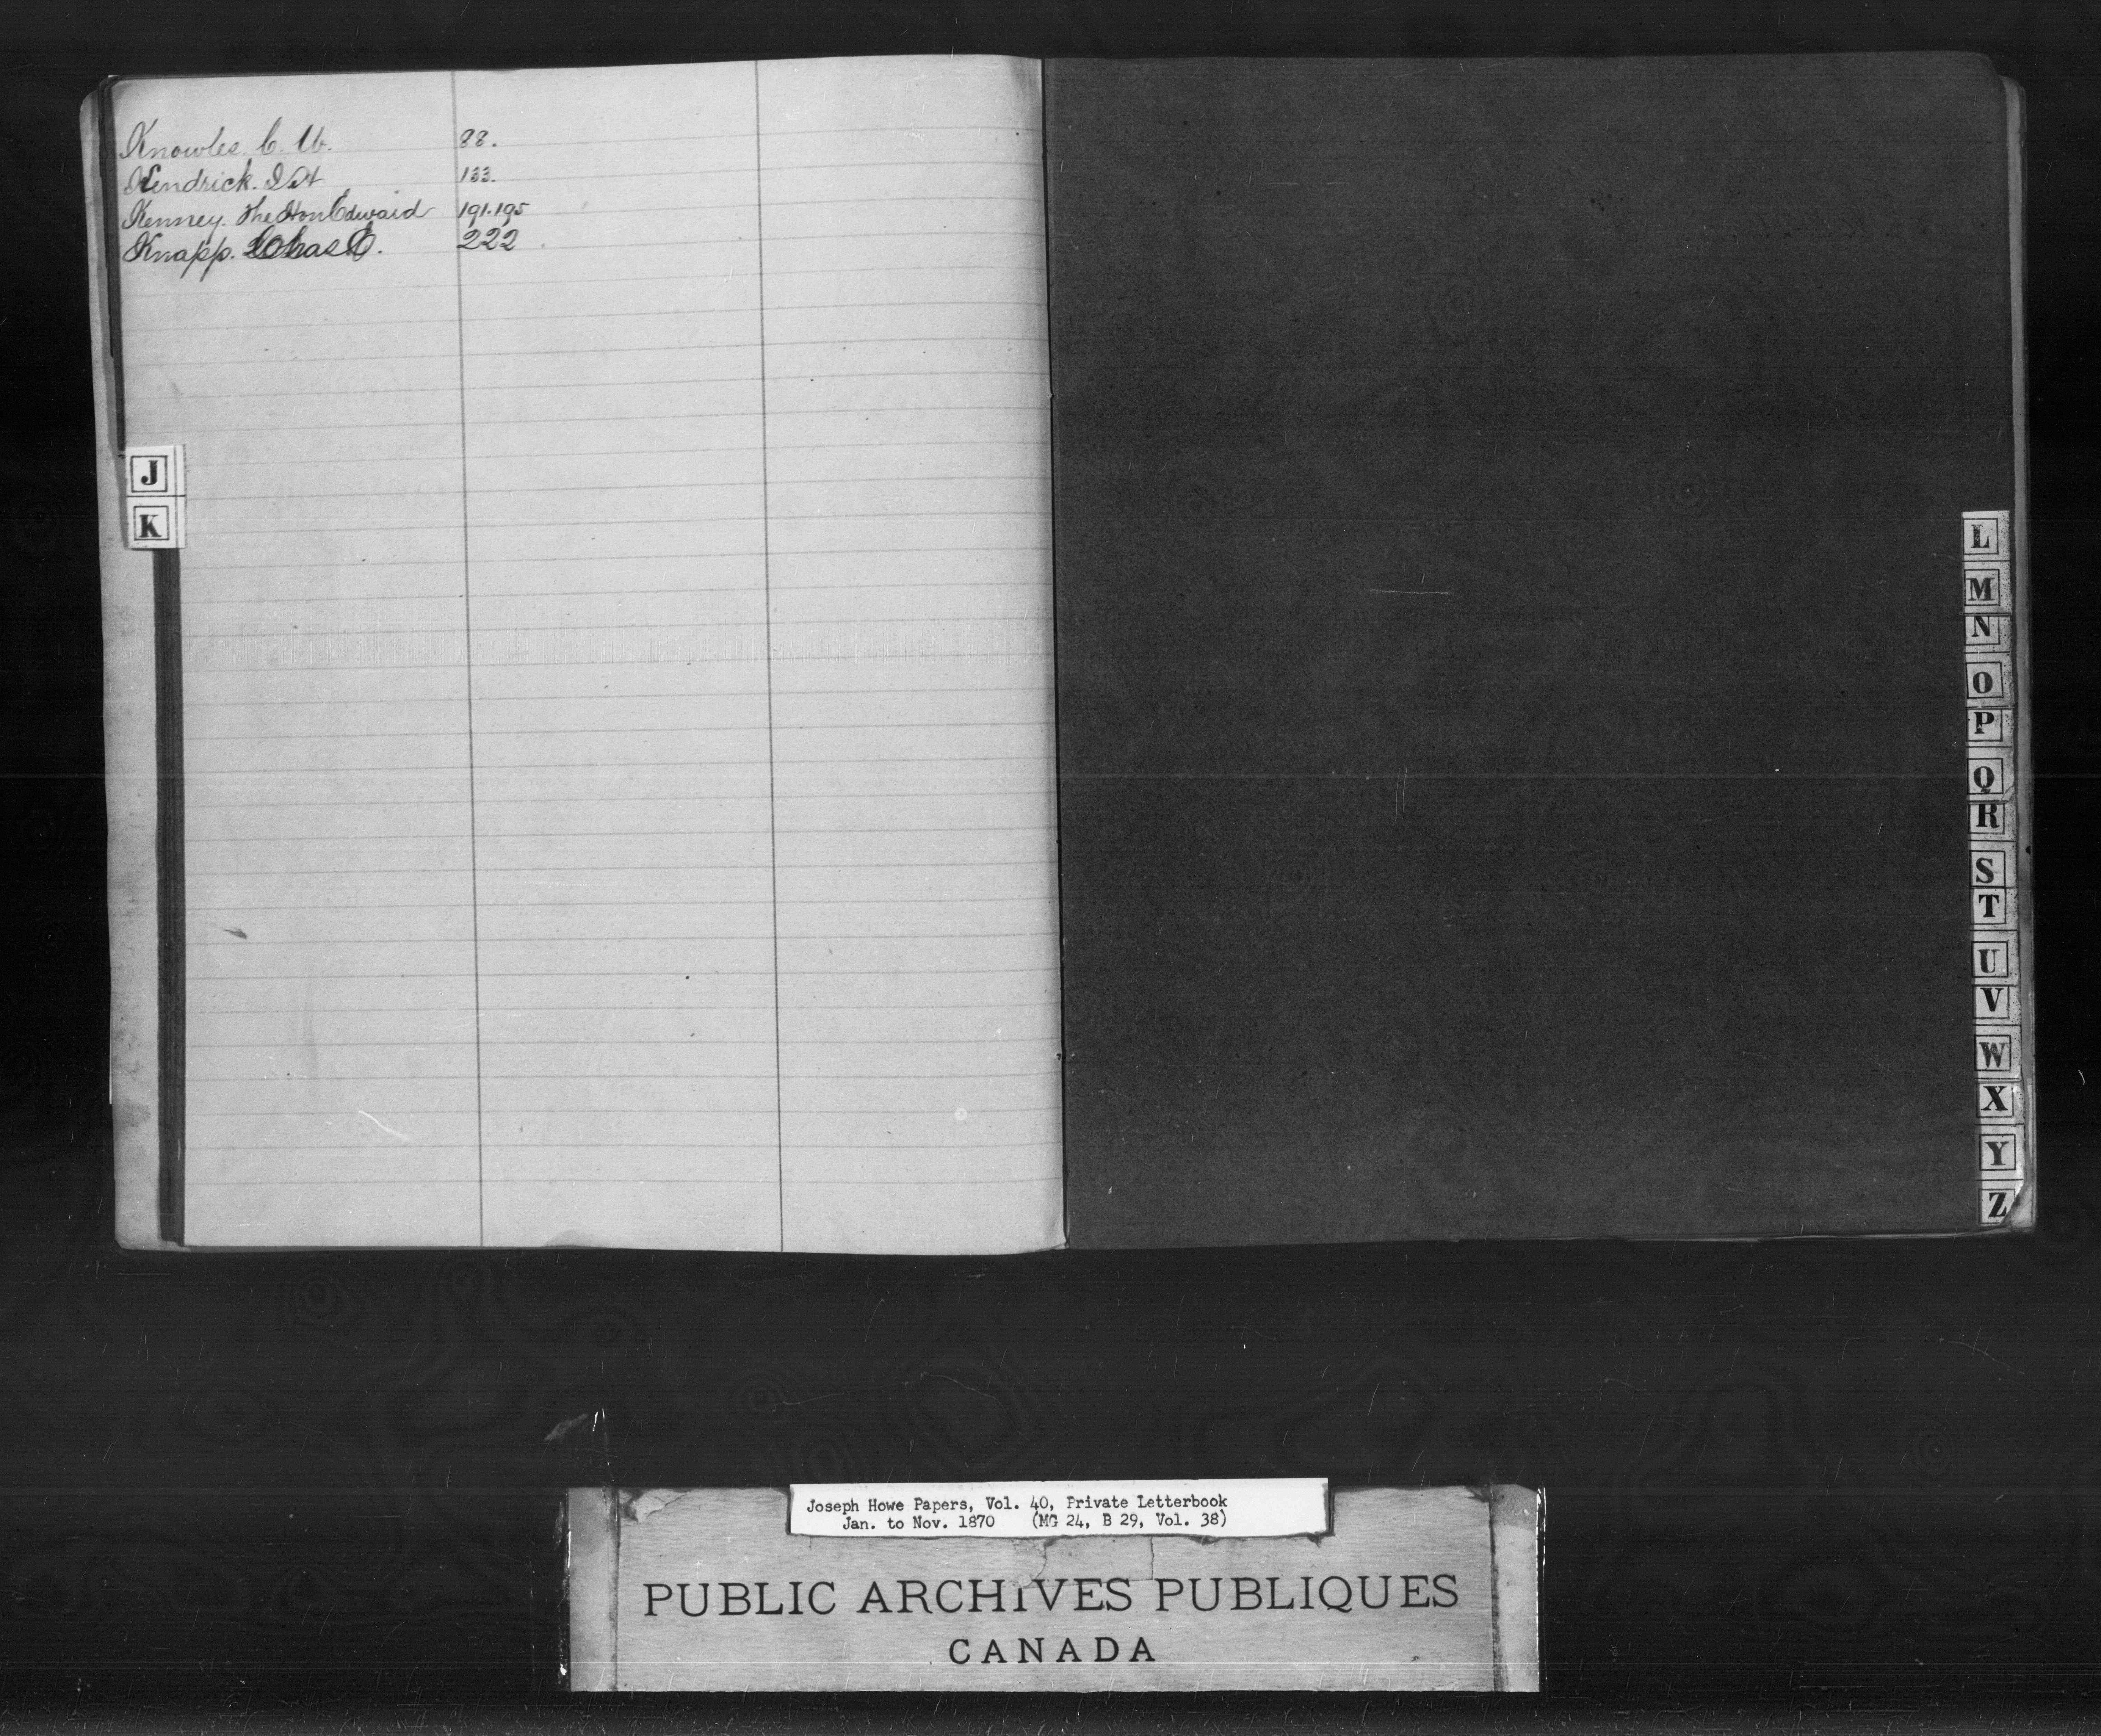 Knowles. C. W. 88.
Kendrick. 133.
Kenney. The Hon Edward 191.195
Knapp. Chas E. 222
J
K
L
M
N
O
P
Q
R
S
T
U
V
W
X
Y
Z
Joseph Howe Papers, Vol. 40, Private Letterbook
Jan. to Nov. 1870 (MG 24, B 29, Vol. 38)
PUBLIC ARCHIVES PUBLIQUES
CANADA